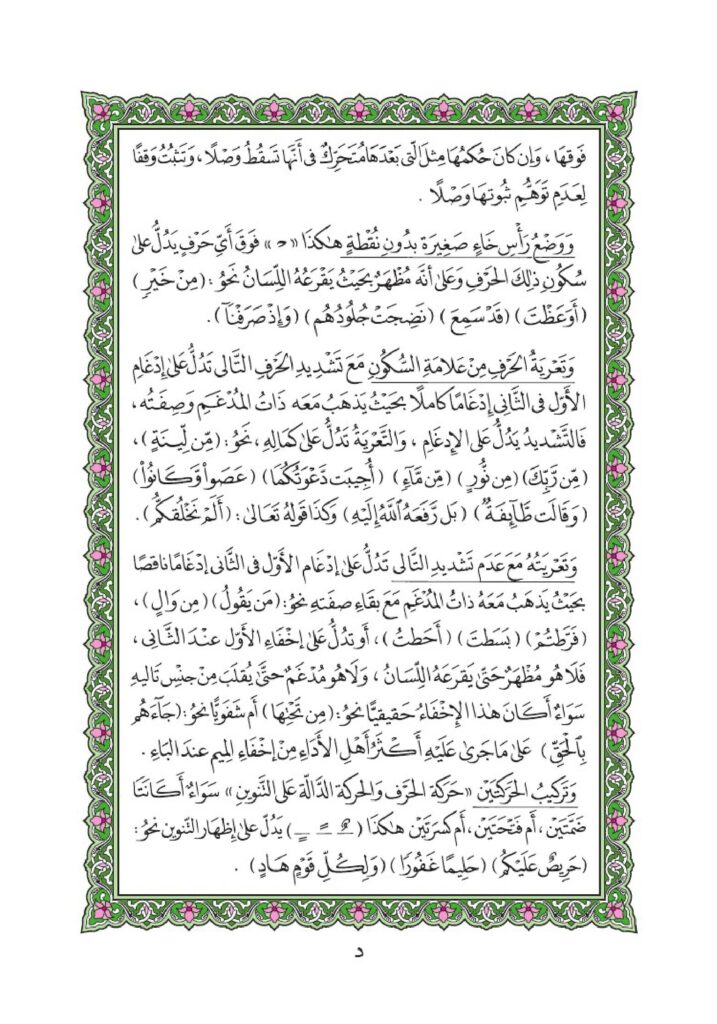 فَوقها ، وَإِن كانَ حُكمُهَا مِثلَ الّتى بَعْدَهَا مُتَحَرِّكٌ فى أَنَّهَا تَسْقُطُ وَصْلًا ، وَتَثبُتُ وَقفًا
لِعَدمِ تَوَهُّمِ ثبُوتهَا وَصْلًا .
وَوَضعُ رَأْسِ خَاءٍ صَغِيرَة بدُونِ نُقْطةٍ هٰكذَا «حـ» فوقَ أَىِّ حَرْفٍ يَدُلُّ على
سُكُونِ ذٰلِكَ الحَرْفِ وَعَلىٰ أنهُ مُظْهَرٌ بحَيْثُ يَقْرَعُهُ اللِّسَانُ نَحْوُ : (مِنْ خَيْرٍ)
(أَوَعَظْتَ) (قَدْ سَمِعَ) (نَضِجَتْ جُلُودُهُم) (وَإِذْ صَرَفْنَآ) .
وَتَعْرِيَةُ الحَرْفِ مِنْ عَلامَةِ السُّكُونِ مَعَ تَشْدِيدِ الحَرفِ التَّالى تَدُلُّ عَلىٰ إِدْغَامِ
الأَوّل فى الثَّانى إِدغَامًا كاملًا بحَيْثُ يَذهَبُ مَعَه ذَاتُ المُدْغَمِ وَصِفَتُه ،
فَالتَّشْدِيدُ يَدُلُّ عَلى الإِدغَامِ ، وَالتَّعْرِيَةُ تَدُلُّ عَلىٰ كَمَالِهِ ، نَحْوُ : (مِّن لِّينَةٍ) ،
(مِّن رَّبِّكَ) (مِن نُّورٍ) (مِّن مَّآءٍ) (أُجِيبَت دَّعْوَتُكُمَا) (عَصَواْ وَّكَانُواْ)
(وَقَالَت طَّآئِفَةٌ) (بَل رَّفَعَهُ ٱللَّهُ إِلَيْهِ) وَكَذَا قَولهُ تَعَالىٰ : (أَلَمْ نَخْلُقكُّم) .
وَتَعْرِيَتُهُ مَعَ عَدَمِ تَشْدِيدِ التَّالى تَدُلُّ عَلىٰ إِدْغَامِ الأَوّل فى الثَّانى إِدْغَامًا نَاقصًا
بحَيْثُ يَذهَبُ مَعَهُ ذَاتُ المُدْغَمِ مَعَ بقَاءِ صفَتهِ نحْوُ : (مَن يَقُولُ) (مِن وَالٍ) ،
(فَرَّطتُمْ) (بَسَطتَ) (أَحَطتُ) ، أو تدُلُّ عَلىٰ إخْفَاءِ الأوّل عندَ الثَّانى ،
فَلا هُو مُظهَرٌ حَتىّٰ يَقْرَعَهُ اللِّسَانُ ، وَلَا هُو مُدْغَمٌ حتَّىٰ يُقلَبَ مِن جنْسِ تَاليهِ
سَوَاءٌ أَكَانَ هٰذا الإِخْفَاءُ حَقِيقِيًّا نحْوُ : (مِن تَحْتِهَا) أم شَفَويًّا نحْوُ : (جَآءَهُم
بِٱلْحَقِّ) عَلىٰ مَا جَرىٰ عَلَيْهِ أَكْثَرُ أَهْلِ الأَدَاءِ مِنْ إخْفَاءِ المِيم عندَ البَاءِ .
وَتَركيبُ الحَرَكَتَيْن «حَرَكة الحَرْف وَالحركة الدَّالّة عَلى التَّنوين» سَوَاءٌ أَكَانَتَا
ضَمَّتَيْن ، أَم فَتْحَتَيْن ، أم كَسرَتَيْن هٰكذَا (ـٌـ ـًـ ـٍـ) يَدُلّ عَلىٰ إِظهَار التَّنوين نحْوُ :
(حَرِيصٌ عَلَيْكُم) (حَلِيمًا غَفُورًا) (وَلِكُلِّ قَوْمٍ هَادٍ) .
د